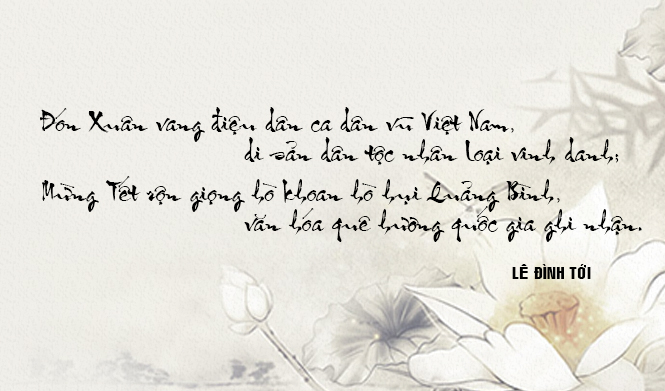 Đón Xuân vang điệu dân ca dân vũ Việt Nam,
di sản dân tộc nhân loại vinh danh;
Mừng Tết rộn giọng hò khoan hò hụi Quảng Bình,
văn hóa quê hương quốc gia ghi nhận.
LÊ ĐÌNH TỚI